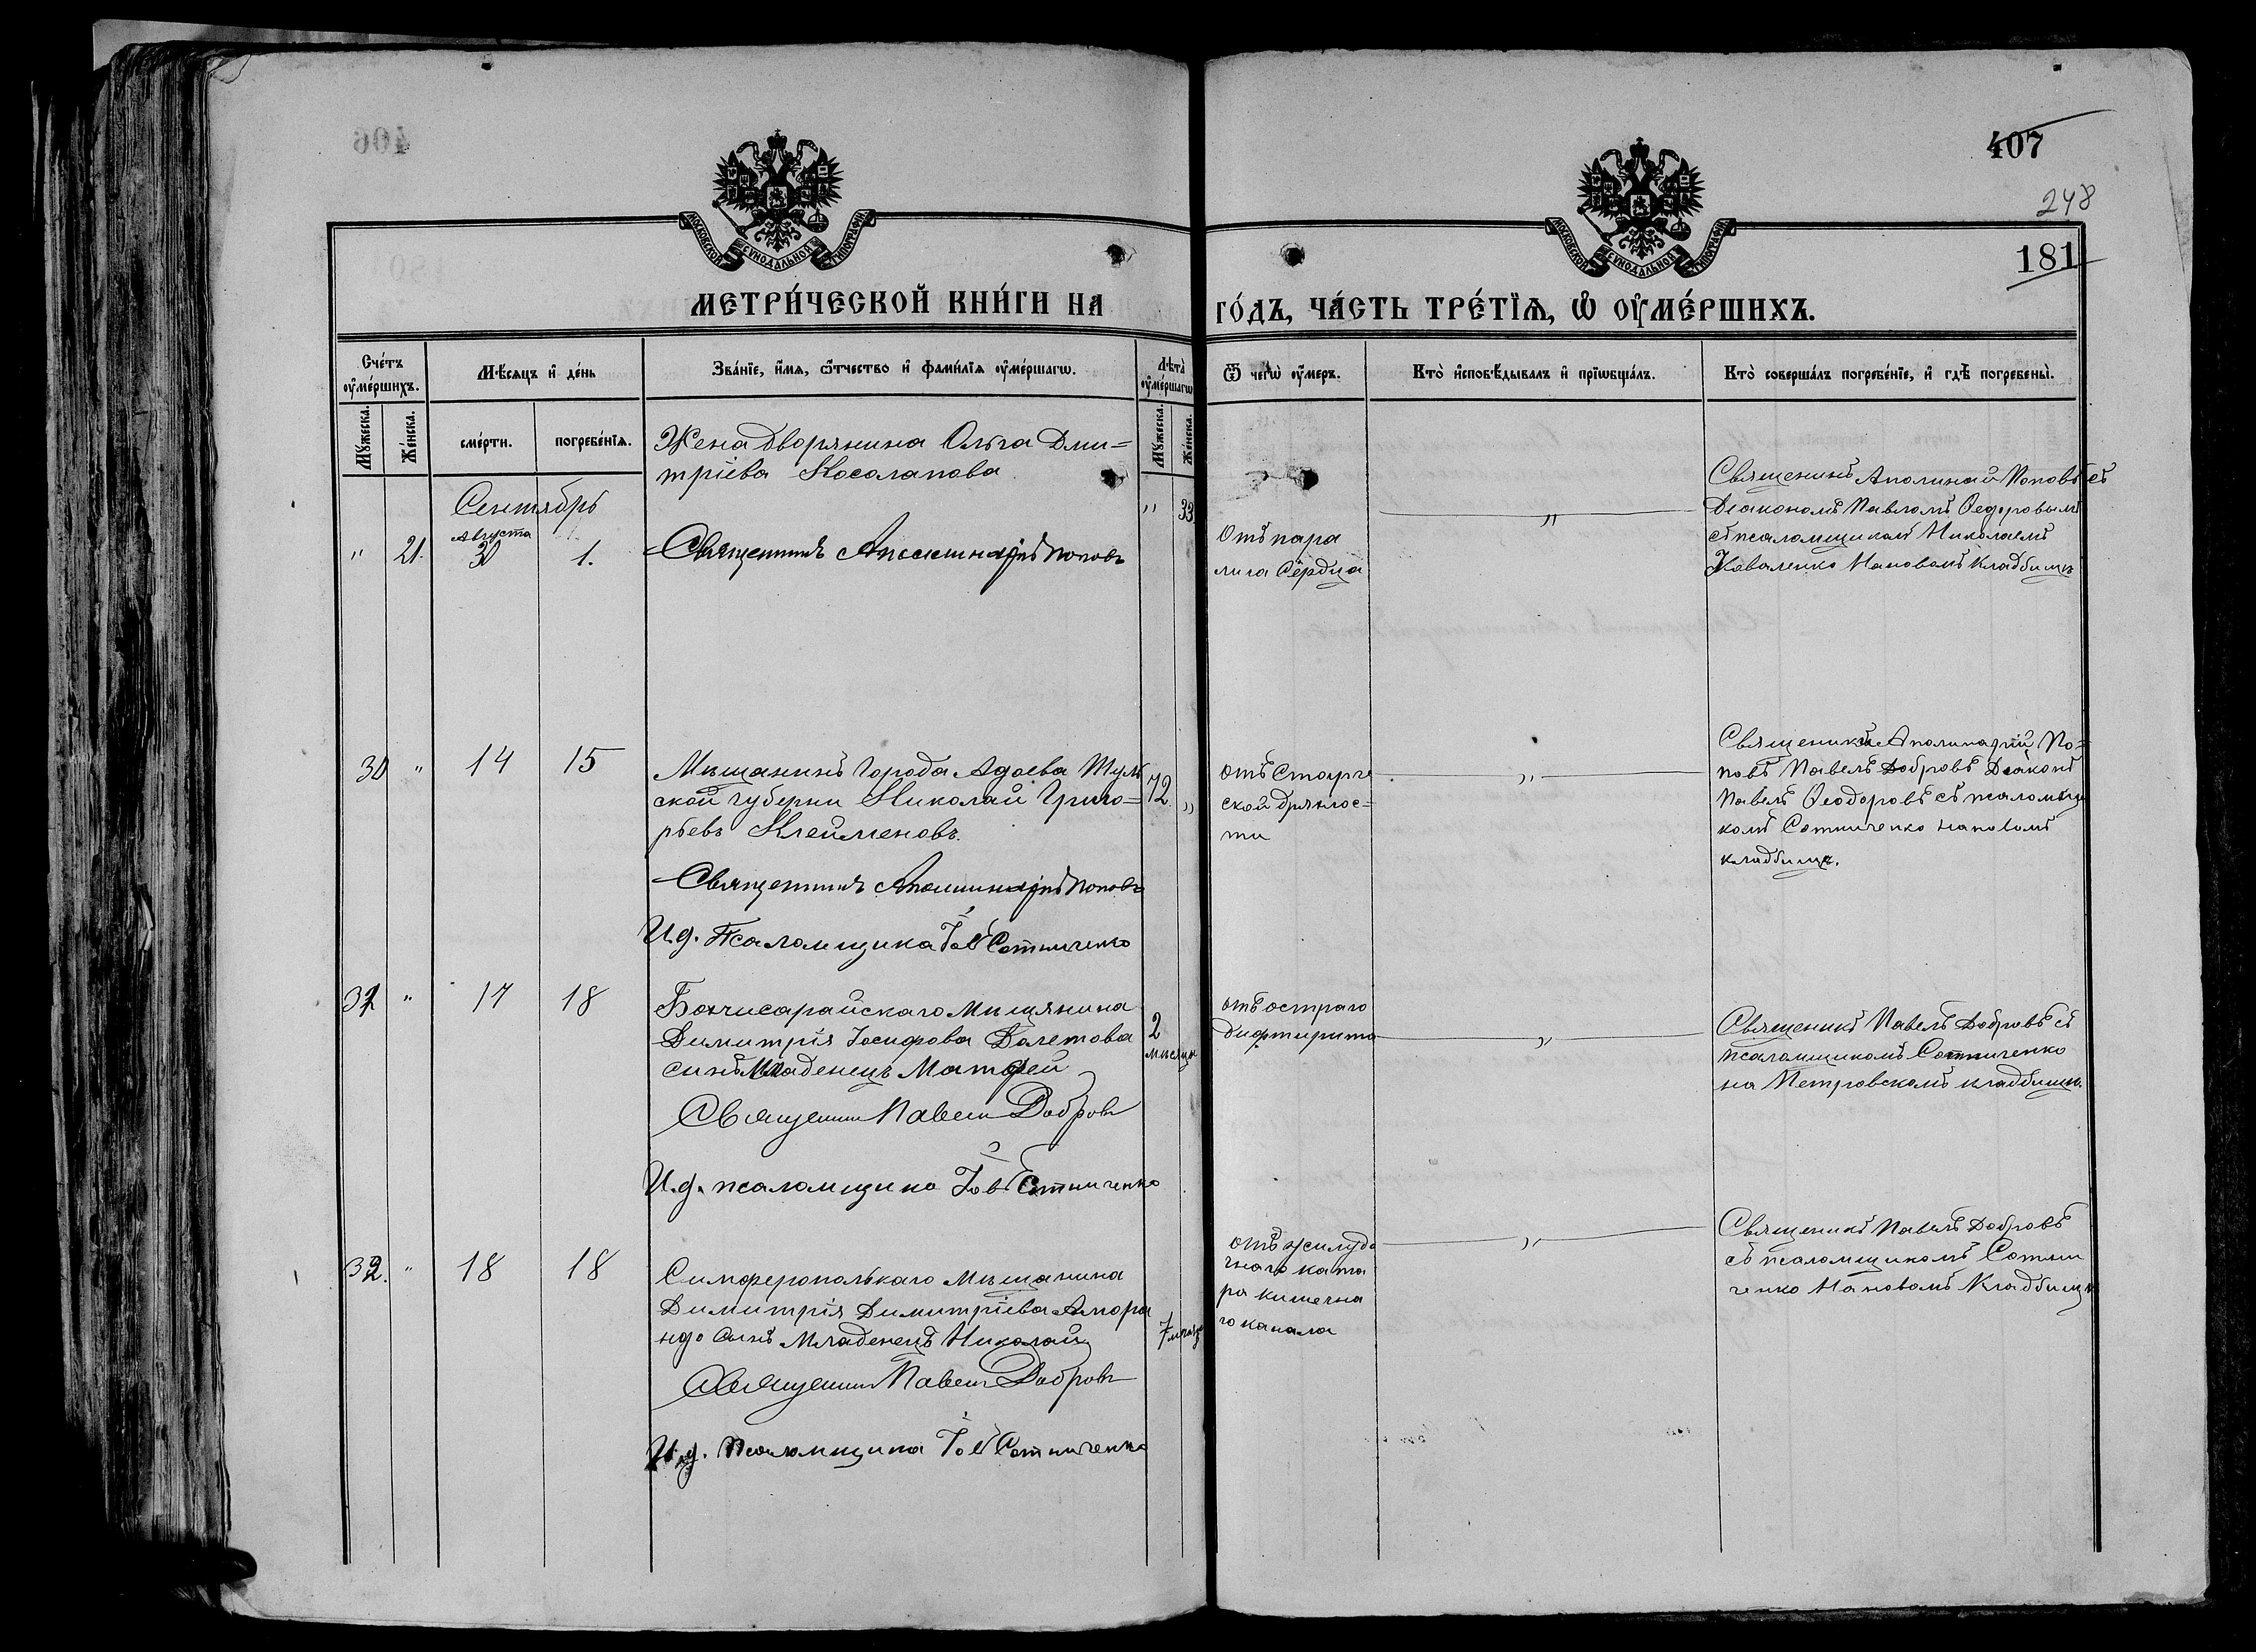 406
407
248
181
МОСКОВСКОЙ СѴНОДАЛЬНОЙ ТИПОГРАФІИ
МОСКОВСКОЙ СѴНОДАЛЬНОЙ ТИПОГРАФІИ
МЕТРИ́ЧЕСКОЙ КНИ́ГИ НА
ГО́ДЪ, ЧА́СТЬ ТРЕ́ТЇѦ, Ѡ҆ ОУ҆МЕ́РШИХЪ.
Сче́тъ оу҆ме́ршихъ.
Мѣ́сѧцъ и҆ де́нь
Зва́нїе, и҆́мѧ, ѻ҆́тчество и҆ фами́лїѧ оу҆ме́ршагѡ.
Лѣта̀ оу҆ме́ршагѡ
Ѿ чегѡ̀ оу҆́меръ.
Кто̀ и҆сповѣ́дывалъ и҆ прїѡбща́лъ.
Кто̀ соверша́лъ погребе́нїе, и҆ гдѣ̀ погребены̀.
Мꙋ́жеска.
Же́нска.
сме́рти.
погребе́нїѧ.
Мꙋ́жеска.
Же́нска.
Сентябрь
Августа
" 21. 30 1.
Жена дворянина Ольга Дми=
тріева Косолапова
Священникъ Аполлинарій Поповъ
" 33
Отъ пара
лича Сердца
"
Священикъ Аполинай Поповъ съ
Діакономъ Павломъ Ѳедоровымъ
съ псаломщикомъ Николаемъ
Коваленко На новомъ кладбищѣ
30 " 14 15
Мѣщанинъ Города Адоева Туль
ской губерни Николай Григо=
рьевъ Клейменовъ.
Священникъ Аполлинарій Поповъ
И.д. Псаломщика Іовъ Сотниченко
72. "
отъ Старче
ской дряхлос=
ти
"
Священики Аполинарий По=
повъ Павелъ Добровъ Діаконъ
Павелъ Ѳеодоровъ съ псаломщи
комъ Сотниченко на новомъ
кладбищѣ.
31 " 17 18
Бахчисарайскаго Мѣщянина
Димитрія Іосифова Далетова
сынъ Младенецъ Матфей
Священник Павел Добровъ
И.д. псаломщика Іовъ Сотниченко
2
мѣсяца
отъ остраго
Дифтирита
"
Священикъ Павелъ Добровъ съ
псаломщикомъ Сотниченко
на Петровскомъ кладбищѣ.
32. " 18 18
Симферополькаго Мѣщанина
Димитрія Димитріева Амора
ндо Сынъ Младенецъ Николай
Священник Павел Добровъ
И.д. Псаломщика Іовъ Сотниченко
отъ жилудо
чнаго ката
ра кишечна
го канала
"
Священикъ Павелъ Добровъ
съ псаломщикомъ Сотни
ченко На новомъ Кладбищѣ